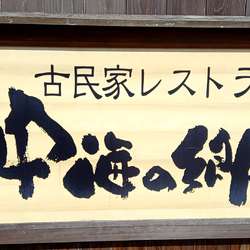 古民家レストラ
海の郷